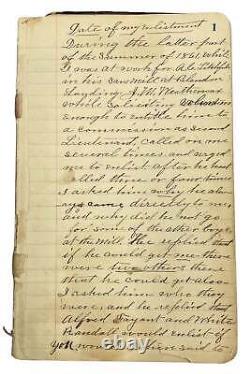 Date of my enlistment 1
During the latter part
of the Summer of 1861, while
I was at work for A.C.
in his Sawmill at
Landing. A.M.
while Soliciting volunteers
enough to entitle him to
a commission as second
Lieutenant, called on me
several times, and urged
me to enlist. After he had
called three or four times
I asked him why he alw-
ays came directly to me,
and why did he not go
for some of the other boys
at the Mill. He replied that
if he could get me there
were two others there
that he could get also.
I asked him who they
were, and he replied that
Alfred and White
Randall would enlist if
you would. I then said to